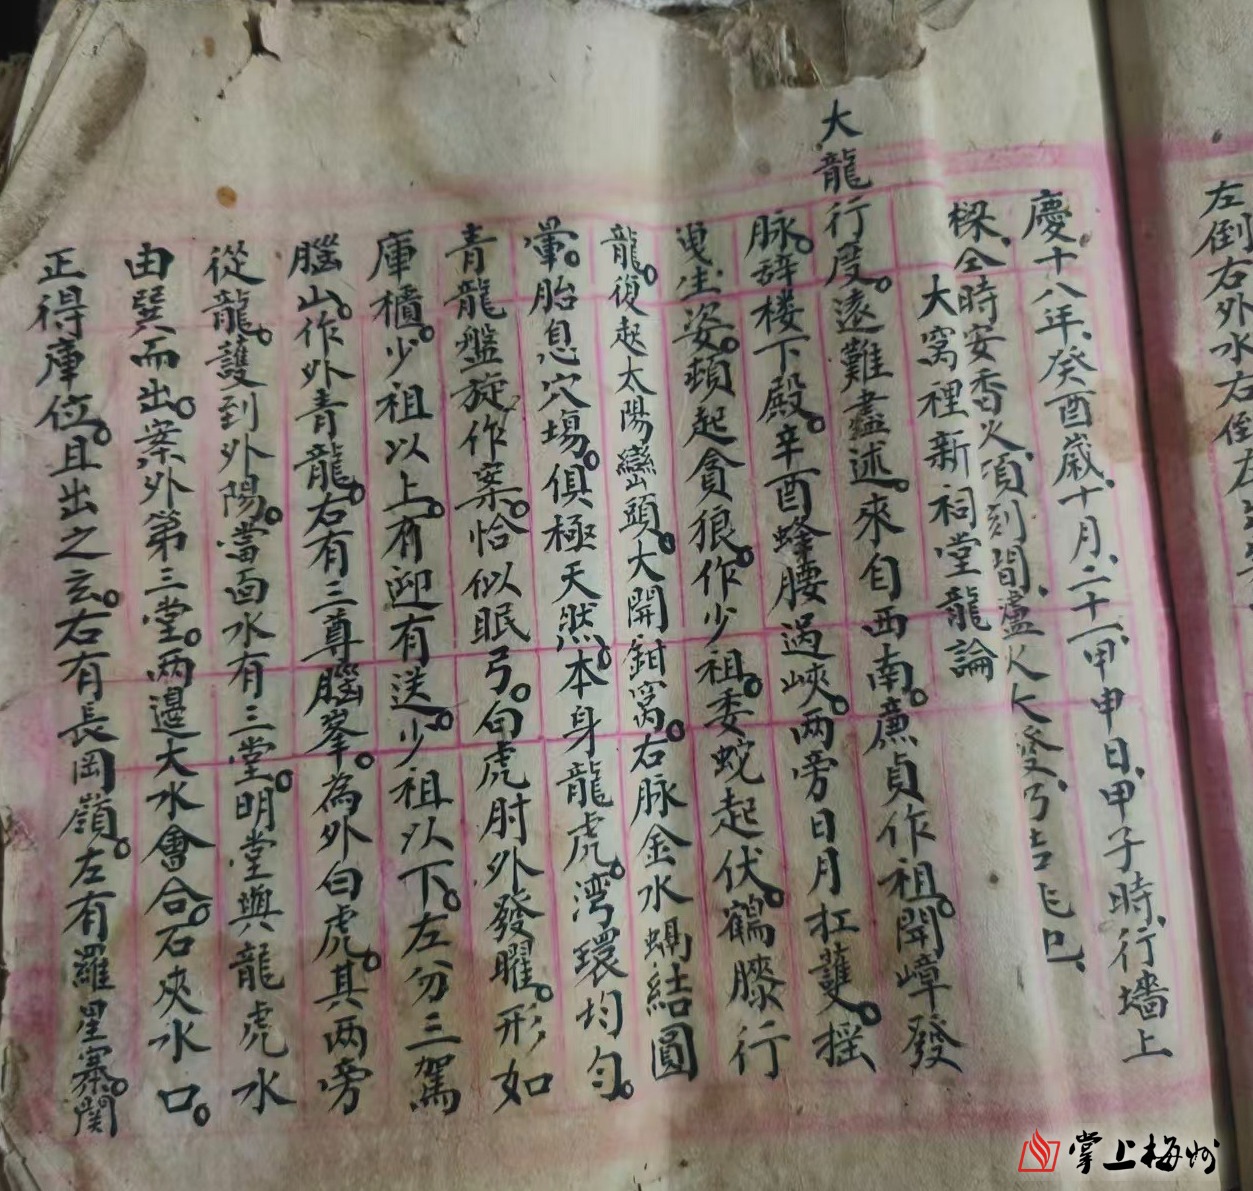 左倒右外水右倒左
慶十八年、癸酉歲、十月、二十一、甲申日、甲子時、行墻上
樑、仝時安香火、頃刻間、爐火大發、巧吉兆也、
大窩裡新祠堂龍論
大龍行度。遠難盡述。來自西南。廉貞作祖。開嶂發
脉。辞楼下殿。辛酉蜂腰過峽。两旁日月扛護。摇
曳生姿。頓起貪狼。作少祖。委蛇起伏。鶴膝行
龍。復起太陽巒頭。大開鉗窩。右脉金水螎結圓
暈。胎息穴場。俱極天然。本身龍虎。湾環均匀。
青龍盤旋作案。恰似眠弓。白虎肘外發曜。形如
庫櫃。少祖以上。有迎有送。少祖以下。左分三駕
腦山。作外青龍。右有三尊腦峯。為外白虎。其两旁
從龍。護到外陽。當面水有三堂。明堂與龍虎水
由巽而出。案外第三堂。两邊大水會合。石夾水口。
正得庫位。且出之玄。右有長岡嶺。左有羅星寨。関
掌上梅州